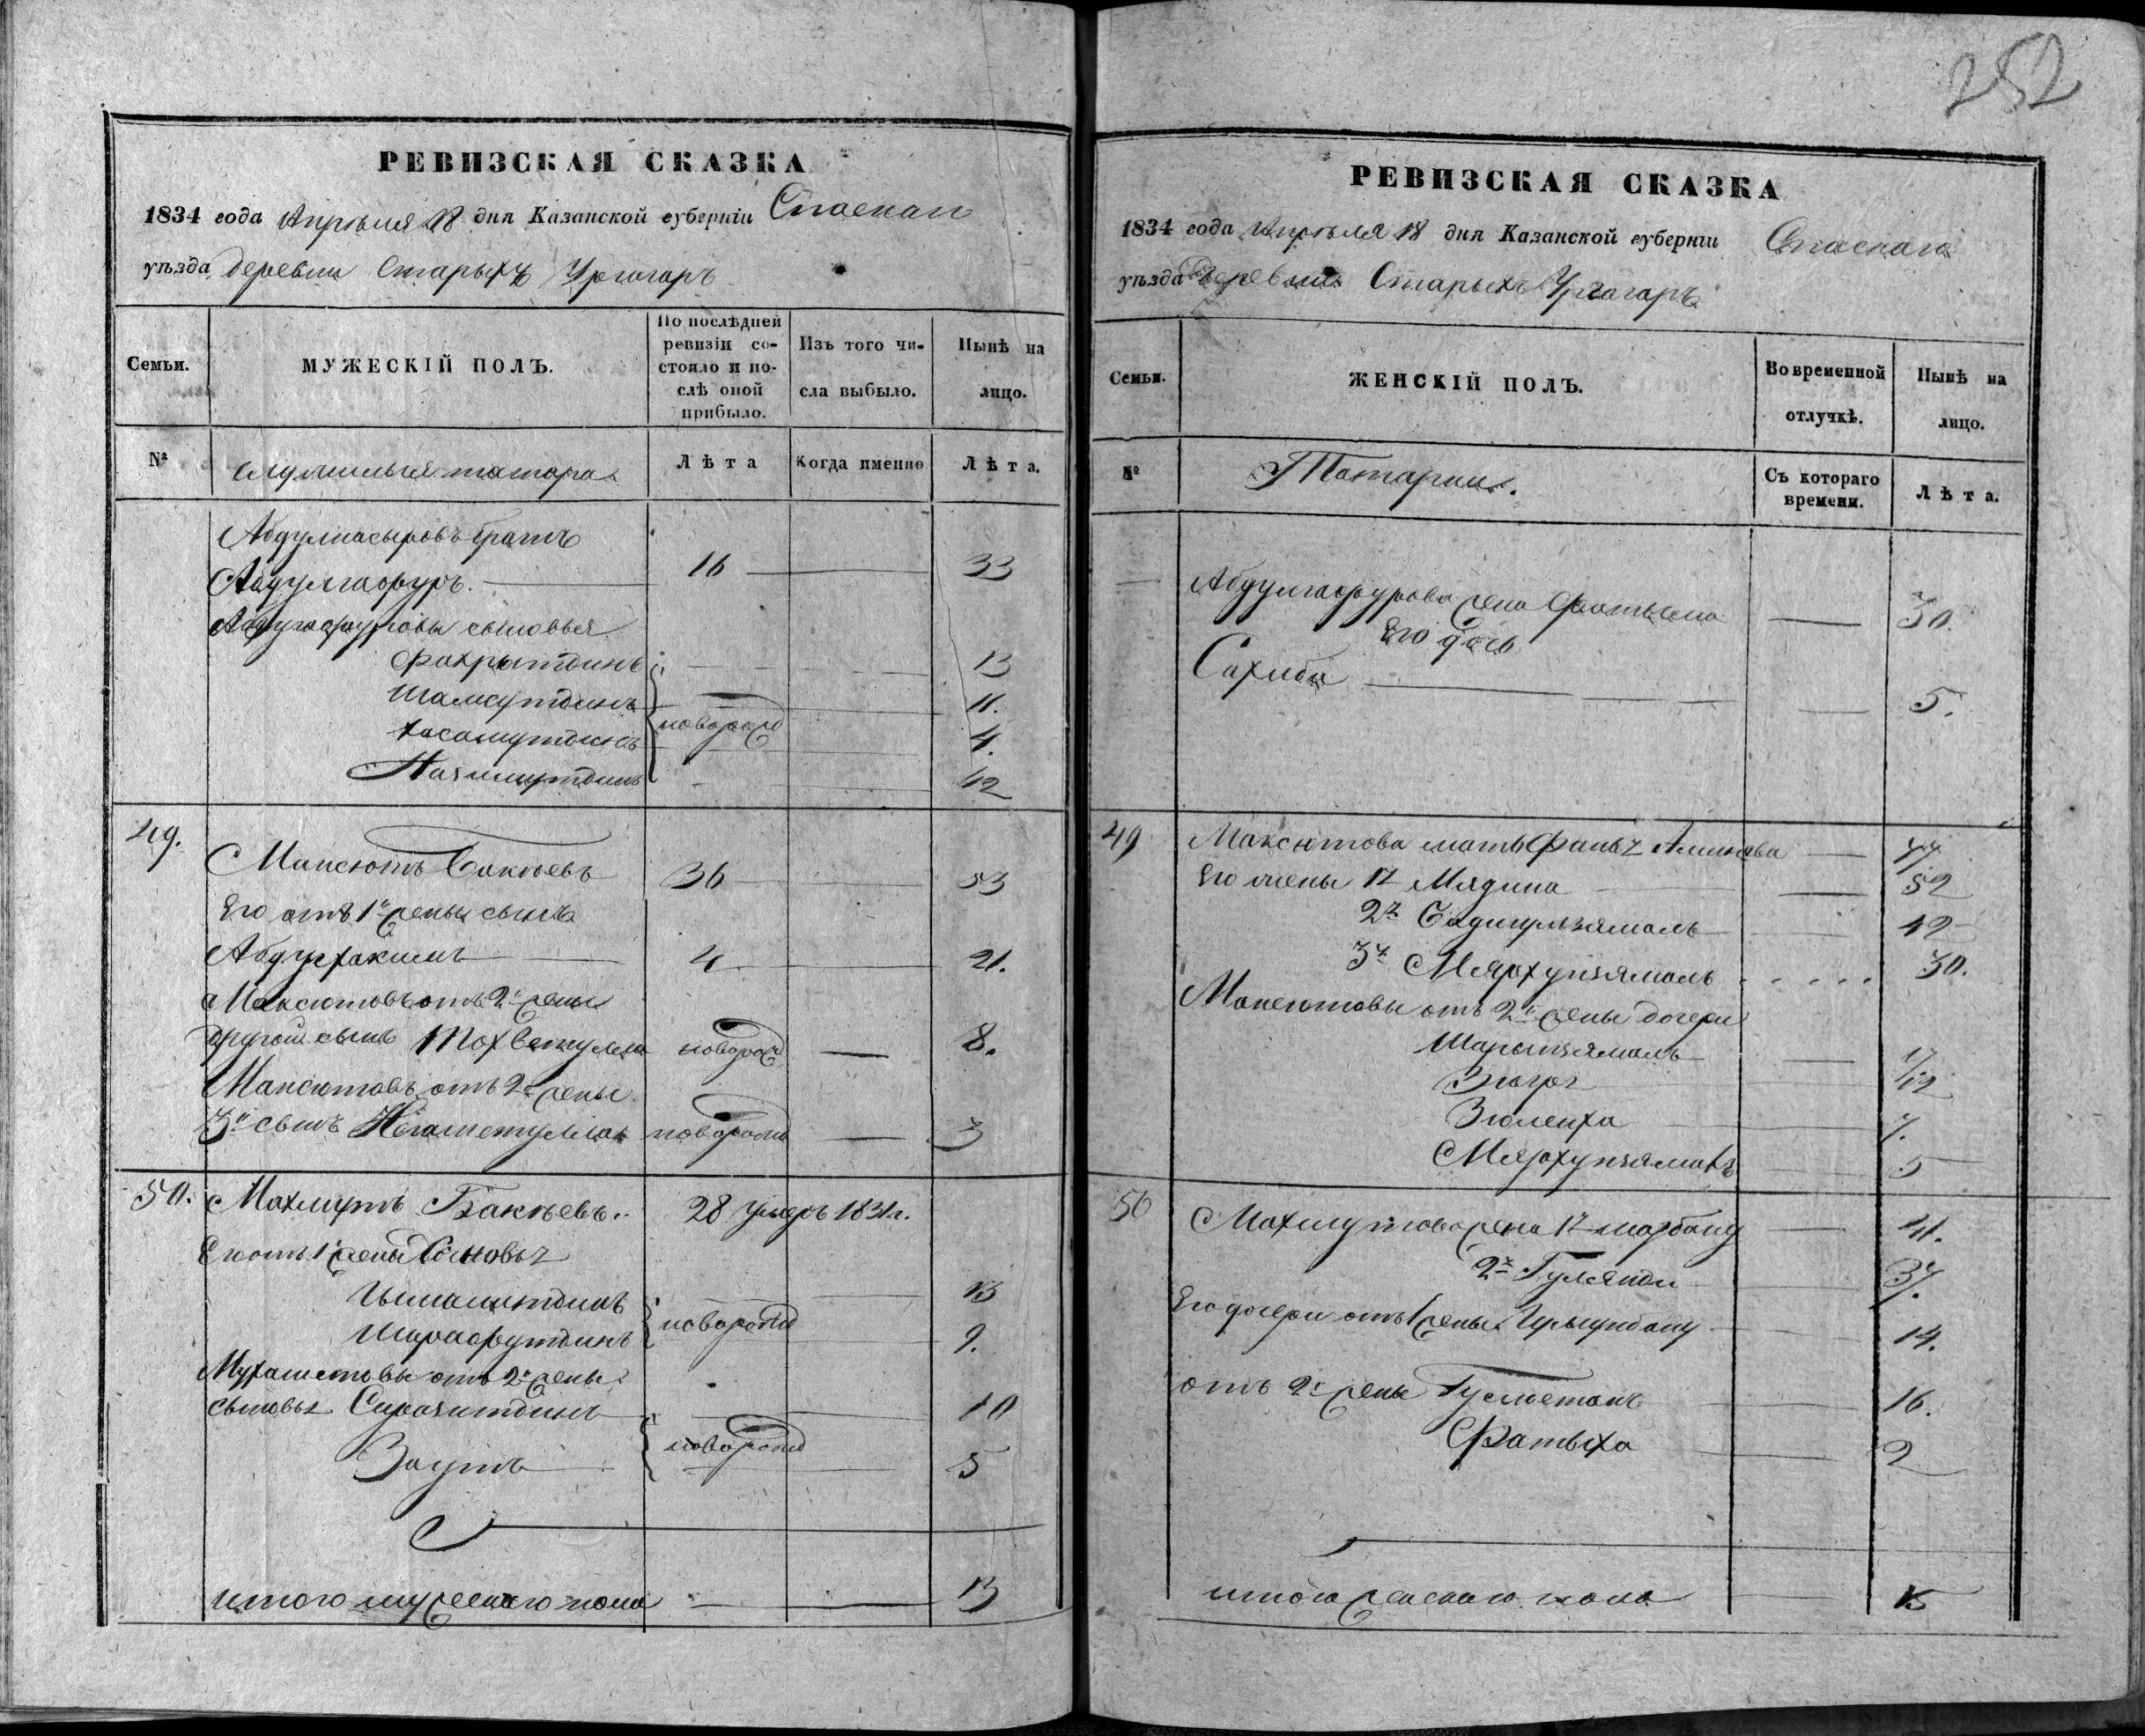 252
РЕВИЗСКАЯ СКАЗКА
1834 года Апрѣля 18 дня Казанской губерніи Спаскаго
уѣзда деревни Старыхъ Ургагаръ
Семьи.
МУЖЕСКІЙ ПОЛЪ.
По послѣдней ревизіи состояло и послѣ оной прибыло.
Изъ того числа выбыло.
Нынѣ на лицо.
№
служилыя татара
Лѣта
Когда именно
Лѣта.
Абдулнасыровъ братъ
Абдулгафуръ. 16 33
Абдулгафуровы сыновья
Фахрытдинъ 13
Шамсутдинъ 11.
новорожд
Хасамутдинъ 4.
Назмутдинъ 1/2
49.
Максютъ Бакѣевъ 36 53
Его отъ 1й жены сынъ
Абдулхакимъ 4 21.
Максютовъ отъ 2й жены
другой сынъ Тохветулла новорожд 8.
Максютовъ отъ 2й жены
3й сынъ Негаметулла новорожд 3
50. Махмутъ Бакѣевъ. 28 умеръ 1831г.
Его отъ 1й жены Сыновья
13
Шарафутдинъ новорожд 9.
отъ 2й жены
сыновья Сиразитдинъ 10
Заутъ новорожд 5
итого мужескаго пола 13
РЕВИЗСКАЯ СКАЗКА
1834 года Апрѣля 18 дня Казанской губерніи Спаскаго
уѣзда деревни Старыхъ Ургагаръ
Семьи.
ЖЕНСКІЙ ПОЛЪ.
Во временной отлучкѣ.
Нынѣ на лицо.
№
Татарки.
Съ котораго времени.
Лѣта.
Абдулгафурова жена Фатыма 30.
Его дочь
Сахиба 5.
49 Максютова мать 77
Его жены 1я Мядина 52
2я Бадигулзямалъ 42
3я Мяфхузямалъ 30.
Максютовы отъ 2й жены дочери
Шарыпзямалъ 17
12
Зюлейха 7.
5
50 Махмутова жена 1я 41.
2я 37.
Его дочери отъ 1 жены 14.
отъ 2й жены 16.
Фатыха 2
итого женскаго пола 15